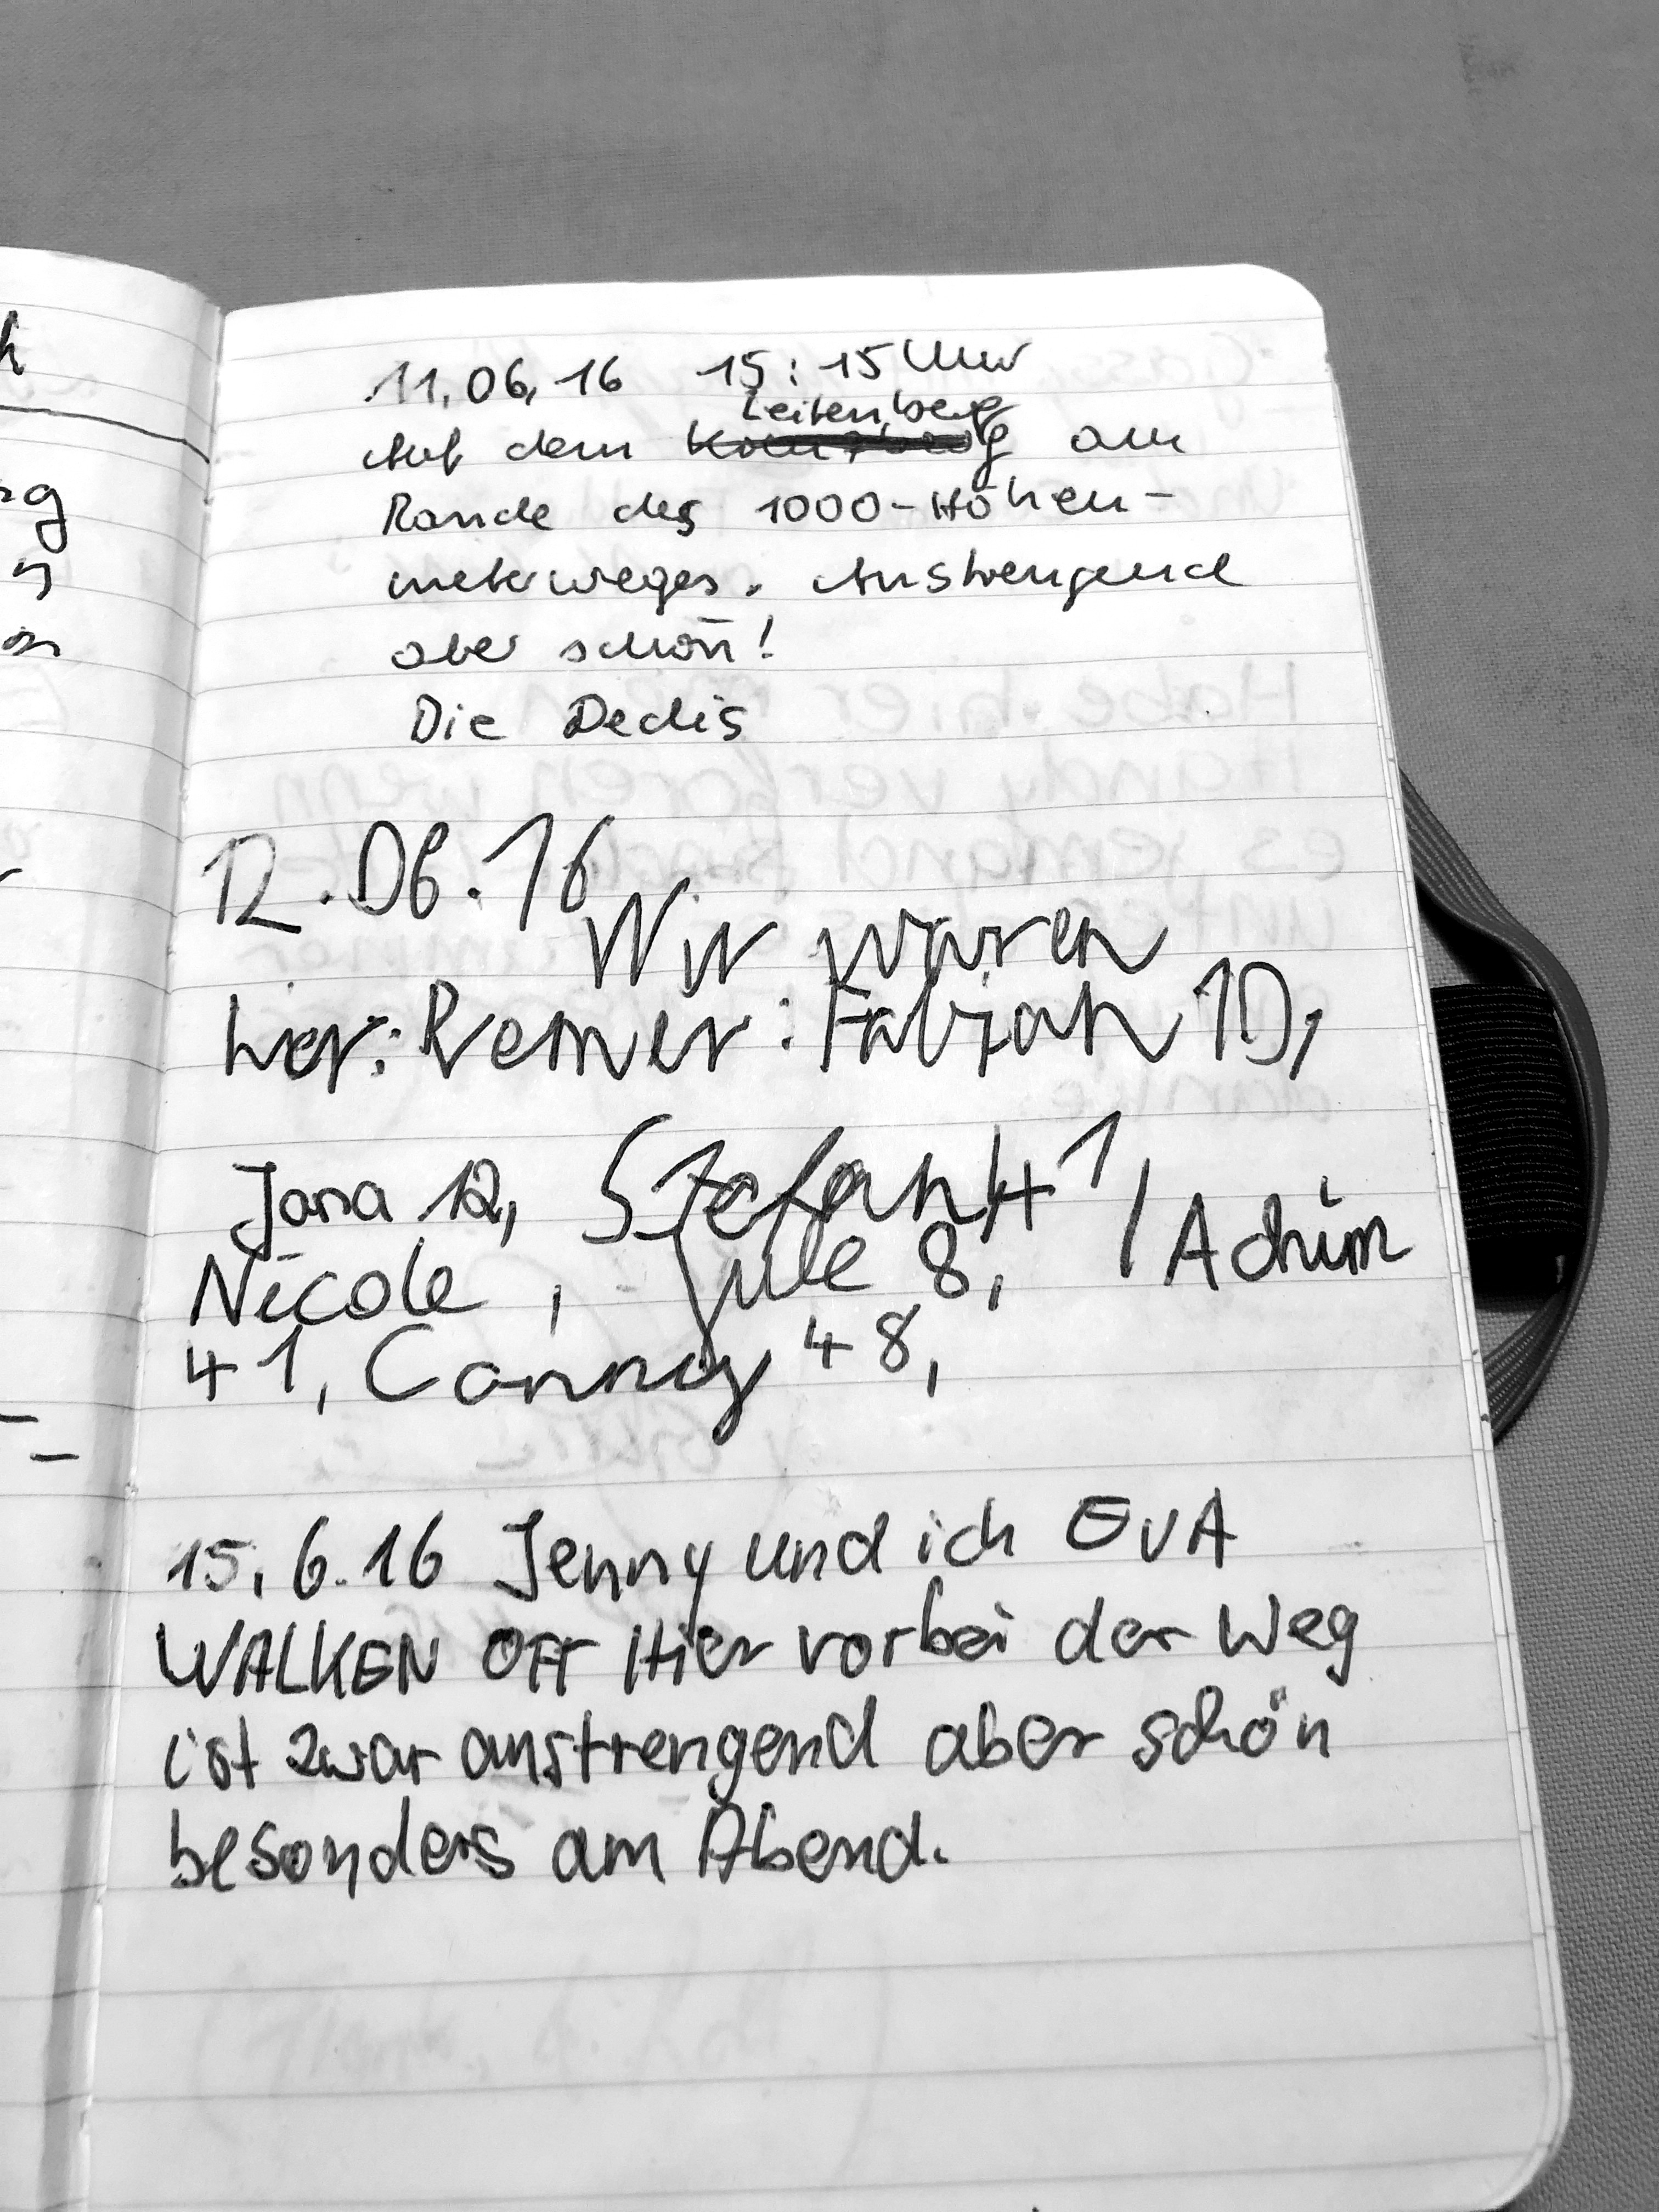 11.06.16 15:15 Uhr
Leitenberg
Auf dem am
Rande des 1000-Höhen-
meterweges. Anstrengend
aber schön!
Die Dedis
12.06.16
Wir waren
hier: Remer: Fabian 10,
Jana 12, Stefan 41,
Nicole, Jule 8, Achim
41, Conny 48,
15.6.16 Jenny und ich EVA
WALKEN OFT Hier vorbei der Weg
ist zwar anstrengend aber schön
besonders am Abend.